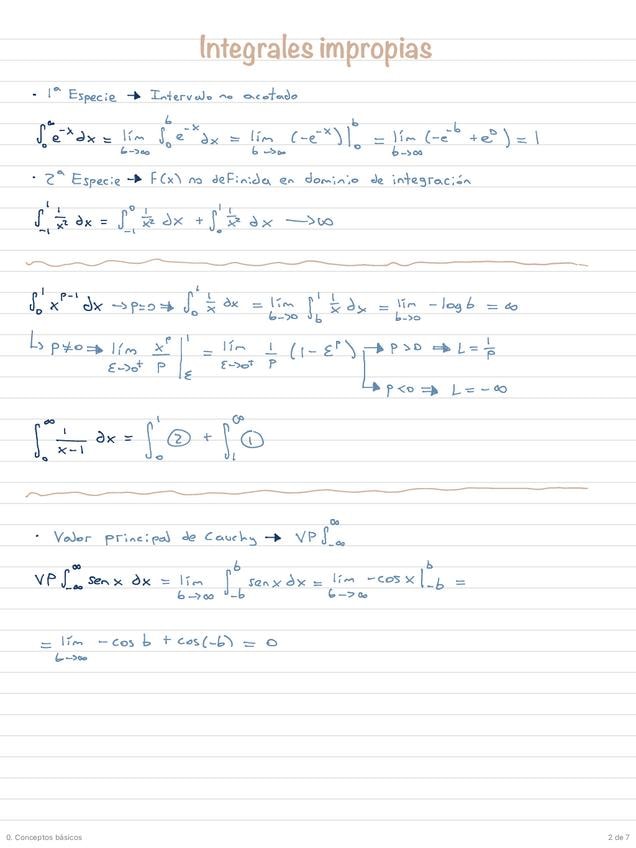 Integrales impropias
· 1ª Especie → Intervalo no acotado
∫₀^∞ e^{-x} dx = lím_{b→∞} ∫₀^b e^{-x} dx = lím_{b→∞} (-e^{-x}) |₀^b = lím_{b→∞} (-e^{-b} + e⁰) = 1
· 2ª Especie → F(x) no definida en dominio de integración
∫_{-1}^1 1/x² dx = ∫_{-1}^0 1/x² dx + ∫₀^1 1/x² dx → ∞
∫₀^1 x^{p-1} dx → p=0 ⇒ ∫₀^1 1/x dx = lím_{b→0} ∫_b^1 1/x dx = lím_{b→0} -log b = ∞
↳ p≠0 ⇒ lím_{ε→0⁺} x^p/p |_ε^1 = lím_{ε→0⁺} 1/p (1-ε^p) → p>0 ⇒ L = 1/p
→ p<0 ⇒ L = -∞
∫₀^∞ 1/(x-1) dx = ∫₀^1 ② + ∫₁^∞ ①
· Valor principal de Cauchy → VP ∫_{-∞}^∞
VP ∫_{-∞}^∞ sen x dx = lím_{b→∞} ∫_{-b}^b sen x dx = lím_{b→∞} -cos x |_{-b}^b =
= lím_{b→∞} -cos b + cos(-b) = 0
0. Conceptos básicos
2 de 7